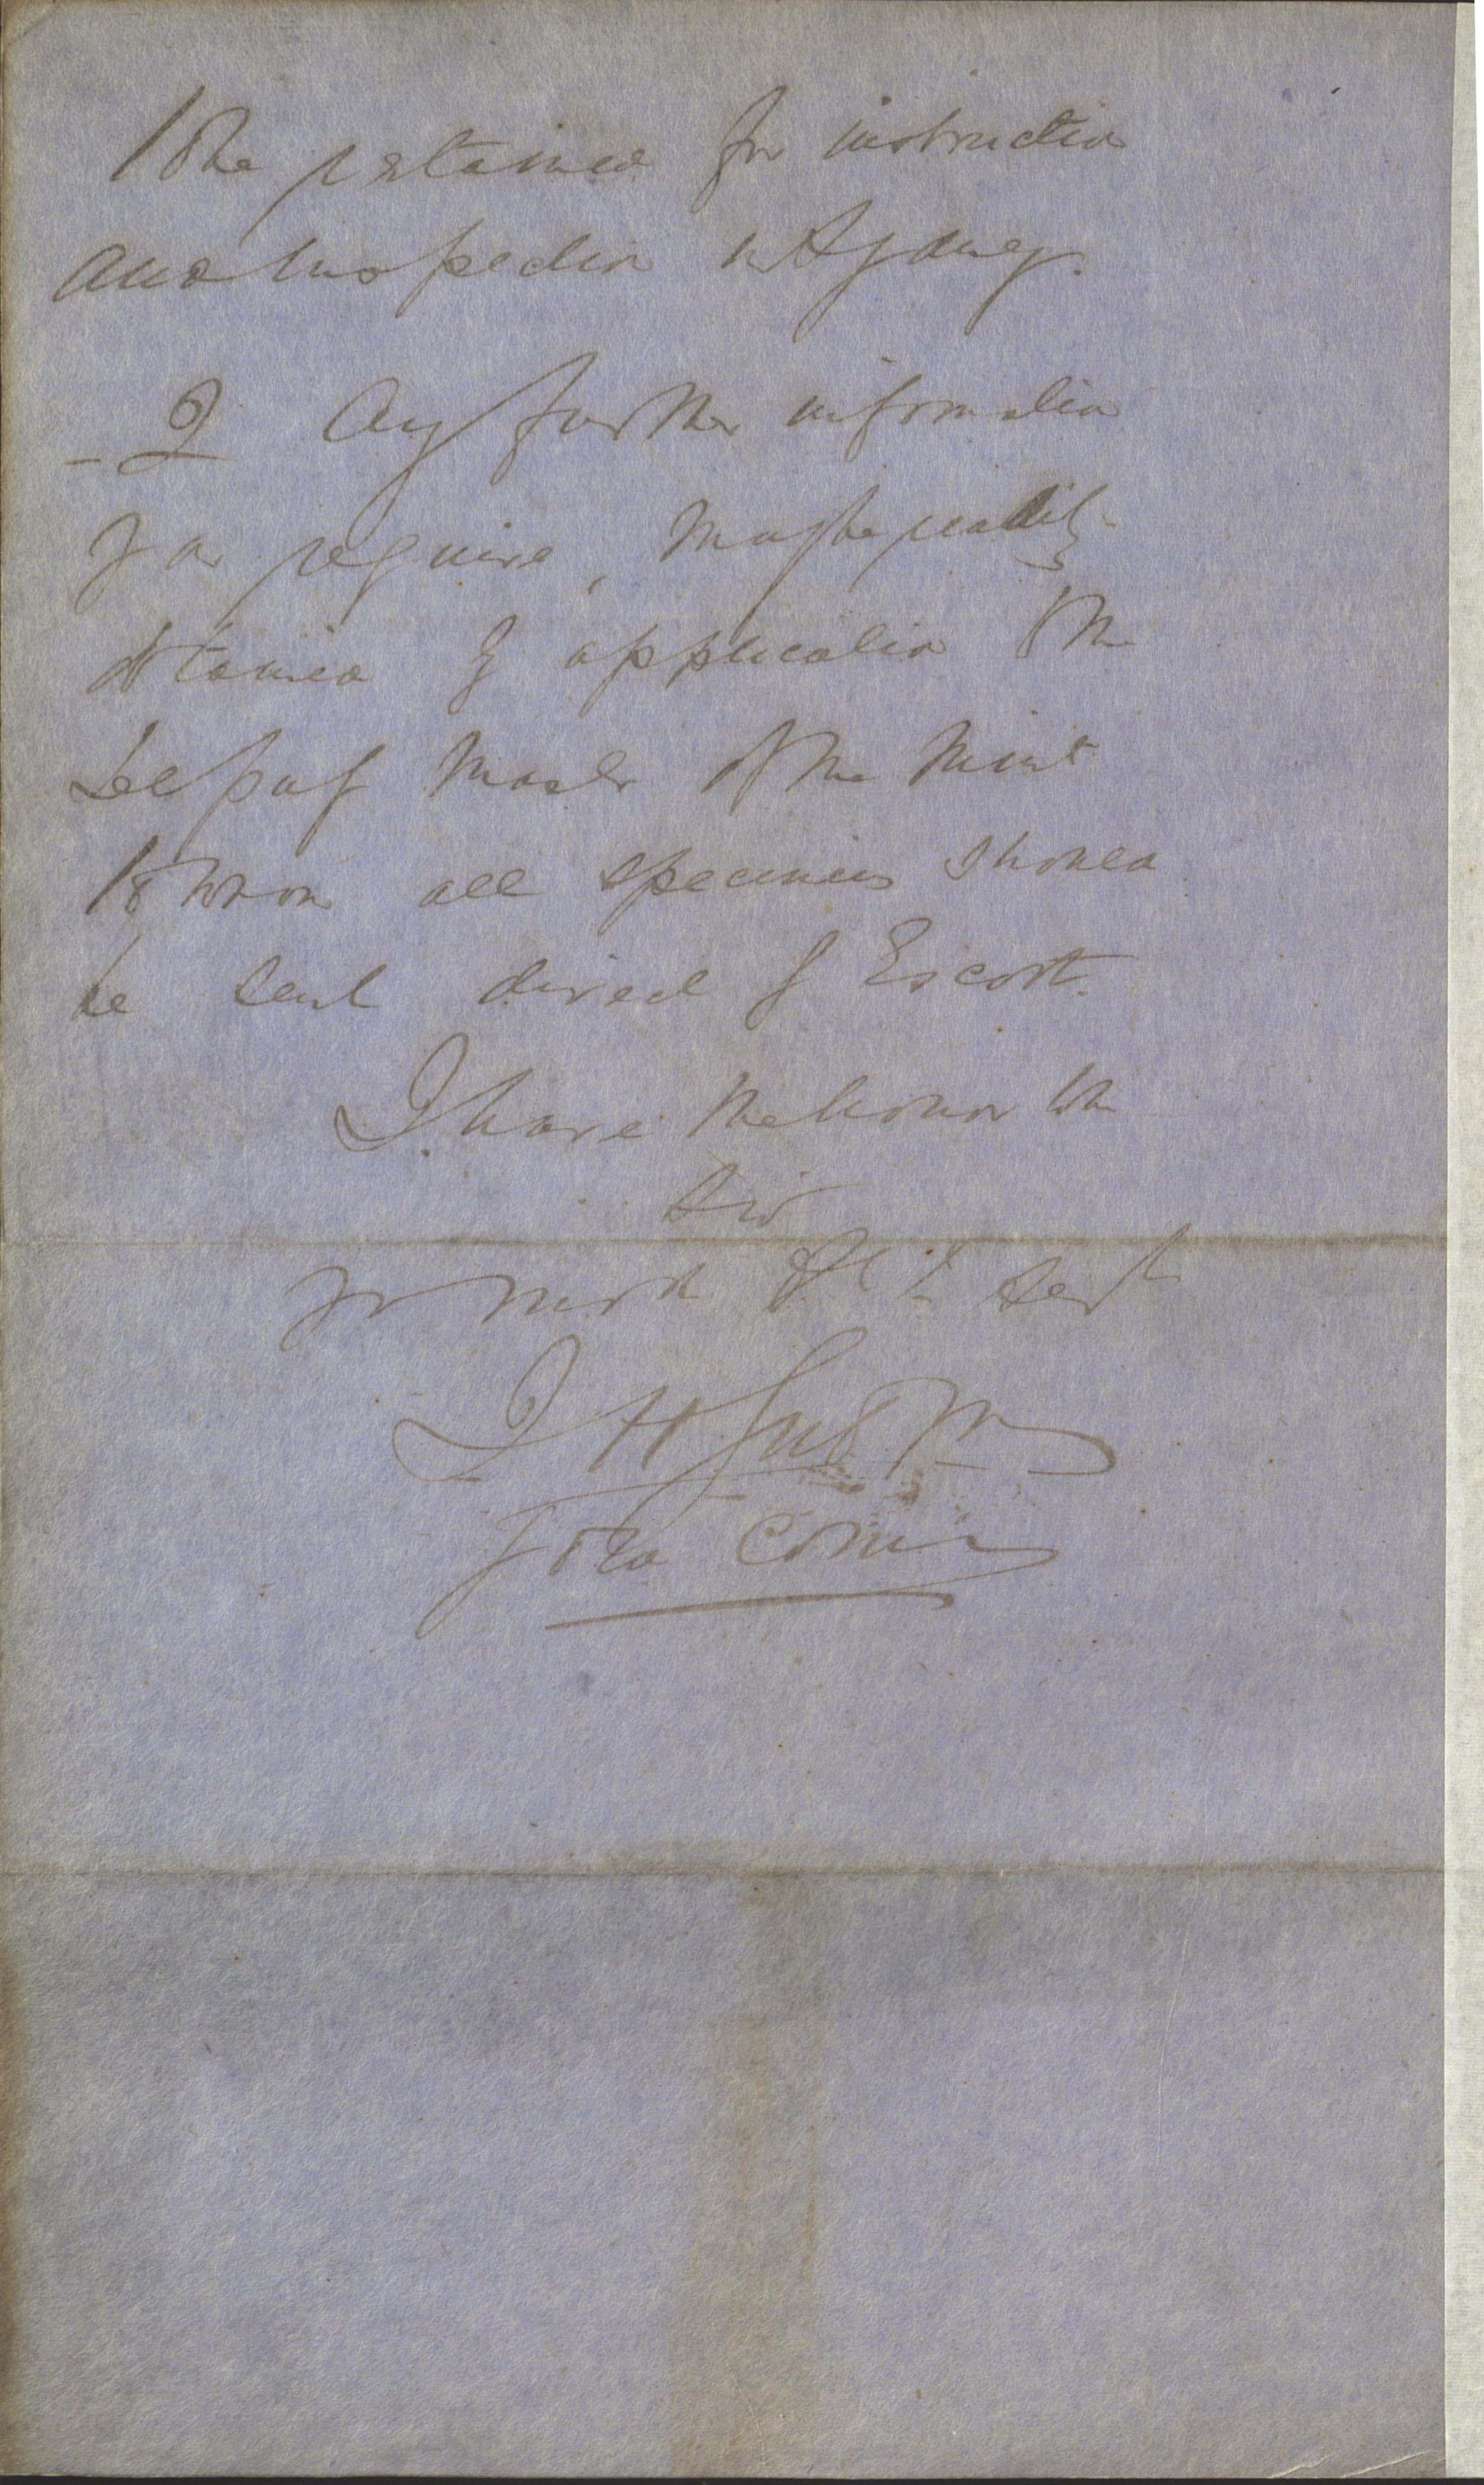 to be retained for instruction
and Inspection in Sydney.
2 Any further information
you require, may be readily
obtained by application to the
Deputy Master of the Mint
to whom all specimens should
be sent direct by Escort.
I have the honor to be
Sir
Yr most Obt Sert
Gold Comr